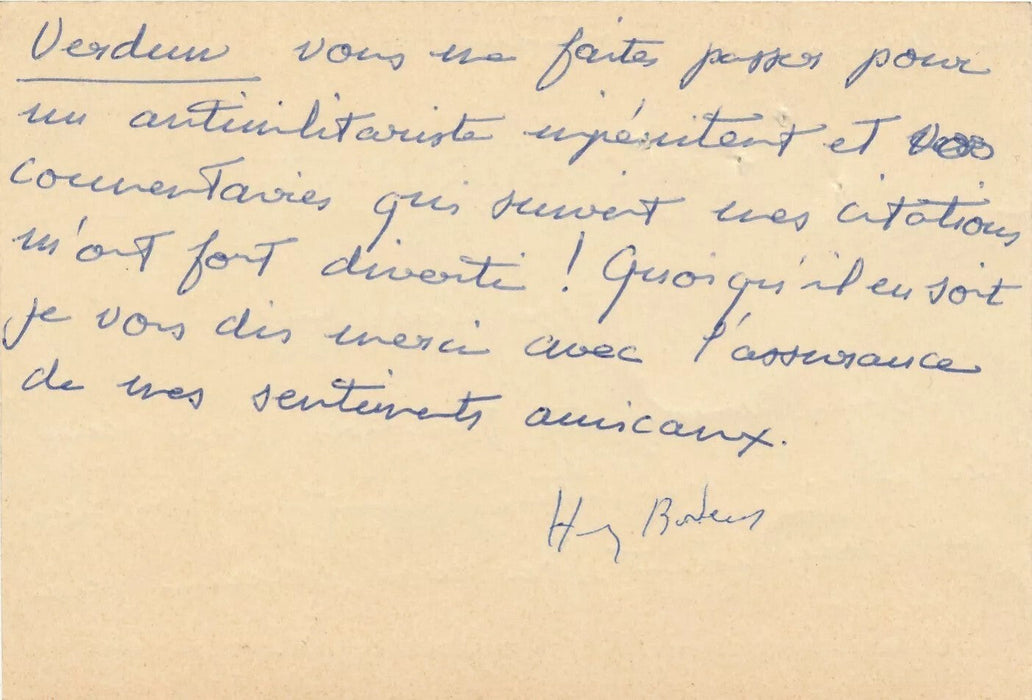 Verdun vous me faites passer pour
un antimilitariste impénitent et vos
commentaires qui suivent mes citations
m'ont fort diverti ! Quoiqu'il en soit
je vous dis merci avec l'assurance
de mes sentiments amicaux.